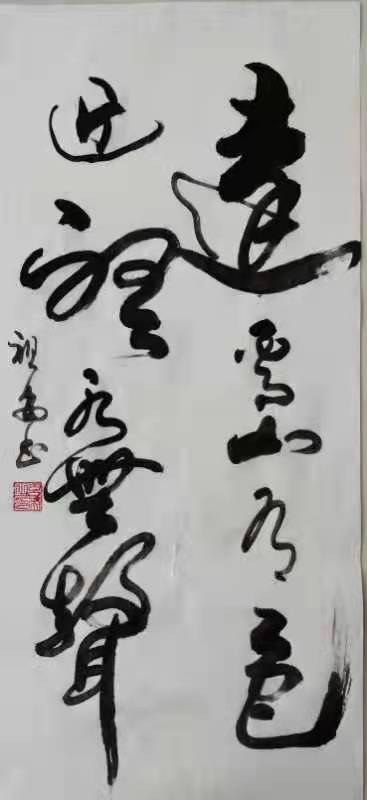 遠看山有色
近聽水無聲
祖